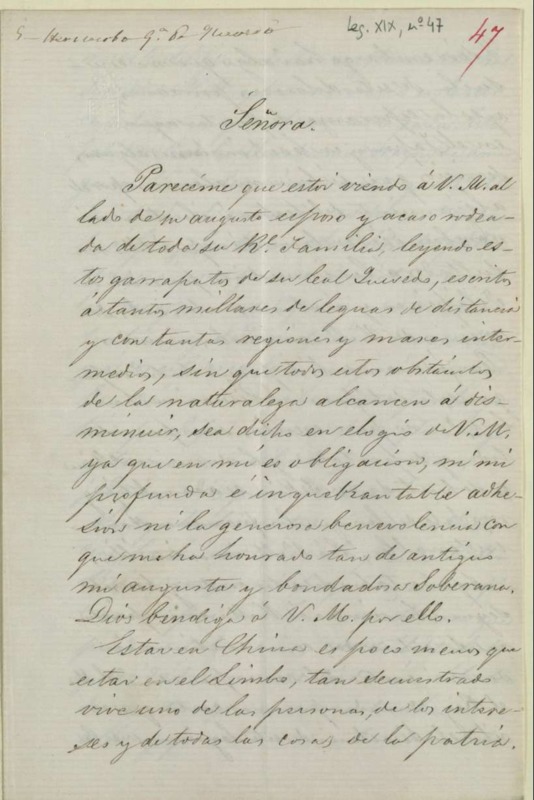 Heriberto Gª de Quevedo
leg. XIX, nº 47
47
Señora.
Paréceme que estoi viendo á V. M. al
lado de su augusto esposo y acaso rodea-
da de toda su Rl. Familia, leyendo es-
tos garrapatos de su leal Quevedo, escritos
á tantos millares de leguas de distancia
y con tantas regiones y mares inter-
medios, sin que todos estos obstáculos
de la naturaleza alcancen á dis-
minuir, sea dicho en elogio de V. M.
ya que en mí es obligación, ni mi
profunda é inquebrantable adhe-
sion ni la generosa benevolencia con
que me ha honrado tan de antiguo
mi augusta y bondadosa Soberana.
Dios bendiga á V. M. por ello.
Estar en China es poco menos que
estar en el Limbo, tan
vive uno de las personas, de los intere-
ses y de todas las cosas de la patria.